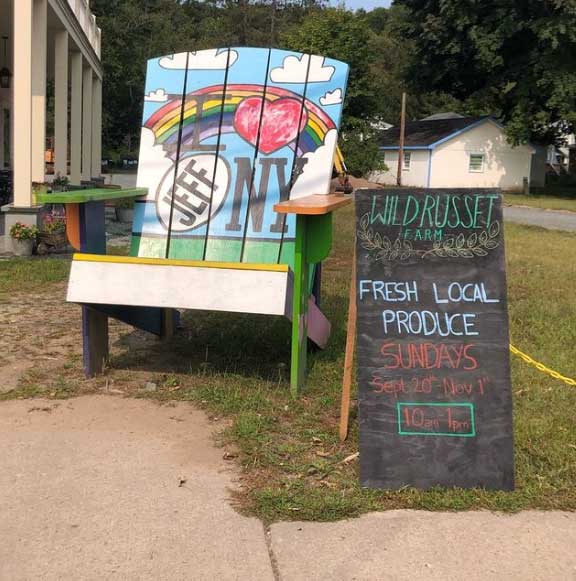 I
JEFF NY
WILD RUSSET
FARM
FRESH LOCAL
PRODUCE
SUNDAYS
Sept 20th - Nov 1st
10am-1pm